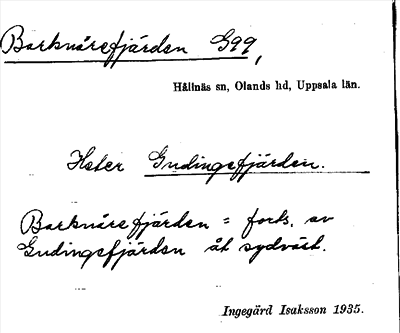 Barknårefjärden G99,
Hållnäs sn, Olands hd, Uppsala län.
Gudingefjärden.
Barknårefjärden = forts. av
Gudingefjärden åt sydväst.
Ingegärd Isaksson 1935.